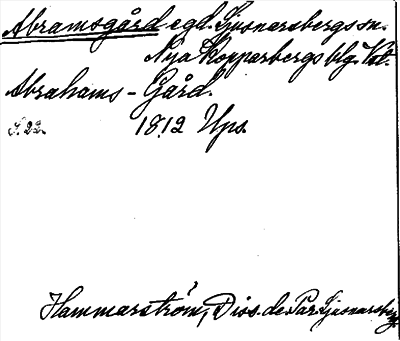 Abramsgård egd. Ljusnarsbergs sn.
Nya Kopparbergs blg. Vst.
Abrahams-Gård.
S. 22. 1812 Ups.
Hammarström, Diss. de Par. Ljusnarsberg.